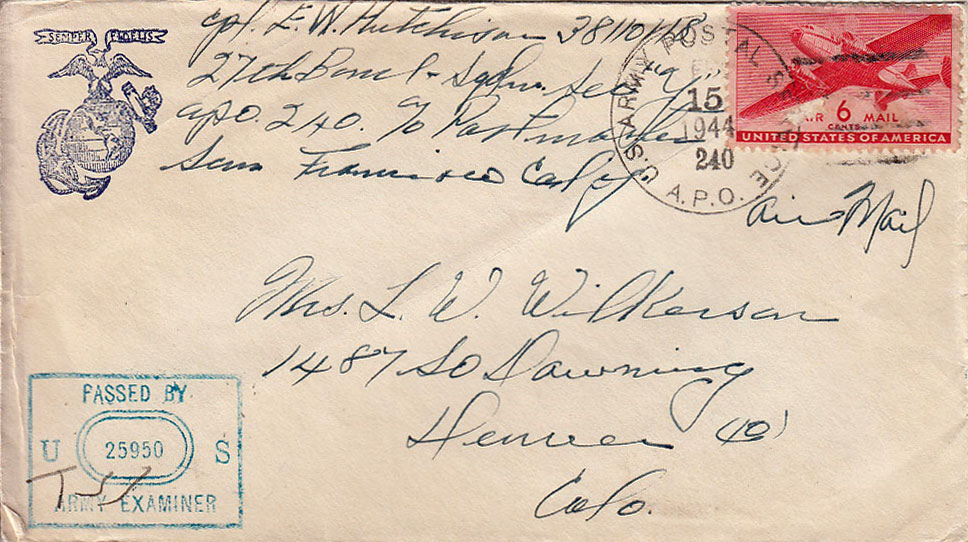 SEMPER FIDELIS
Cpl. E. W. Hutchison 38110118
27th Bomb Sqdn. Sec "a"
apo. 240. c/o Postmaster
San Francisco Calif.
U.S. ARMY POSTAL SERVICE
15
1944
240
A.P.O.
AIR 6 MAIL
CENTS
UNITED STATES OF AMERICA
Air Mail
Mrs. L. W. Wilkerson
1487 So Downing
Denver (10)
Colo.
PASSED BY
U 25950 S
ARMY EXAMINER